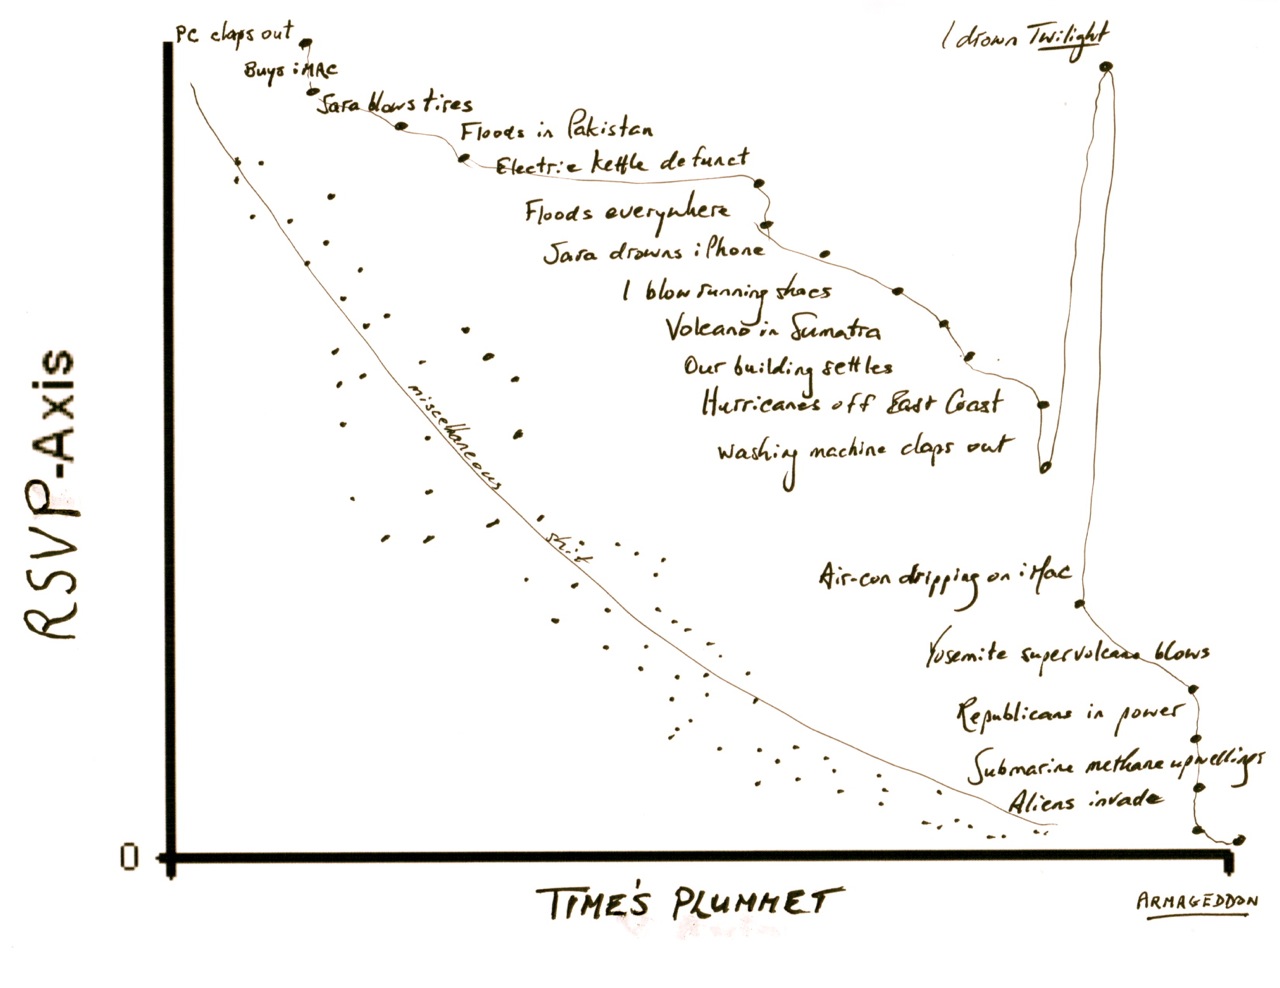 PC claps out
Buys iMAC
Sara blows tires
Floods in Pakistan
Electric kettle defunct
Floods everywhere
Sara drowns iPhone
I blow running shoes
Volcano in Sumatra
Our building settles
Hurricanes off East Coast
washing machine claps out
I drown Twilight
Air-con dripping on iMac
Yosemite supervolcano blows
Republicans in power
Submarine methane upwellings
Aliens invade
miscellaneous
shit
RSVP-Axis
0
TIME'S PLUMMET
ARMAGEDDON